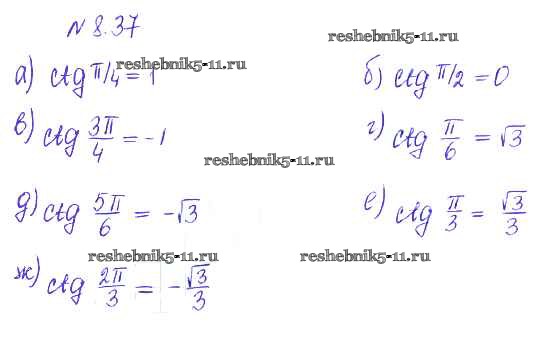 N 8.37
reshebnik5-11.ru
а) ctg π/4 = 1
reshebnik5-11.ru
б) ctg π/2 = 0
в) ctg 3π/4 = -1
г) ctg π/6 = √3
reshebnik5-11.ru
д) ctg 5π/6 = -√3
е) ctg π/3 = √3/3
reshebnik5-11.ru
reshebnik5-11.ru
ж) ctg 2π/3 = -√3/3